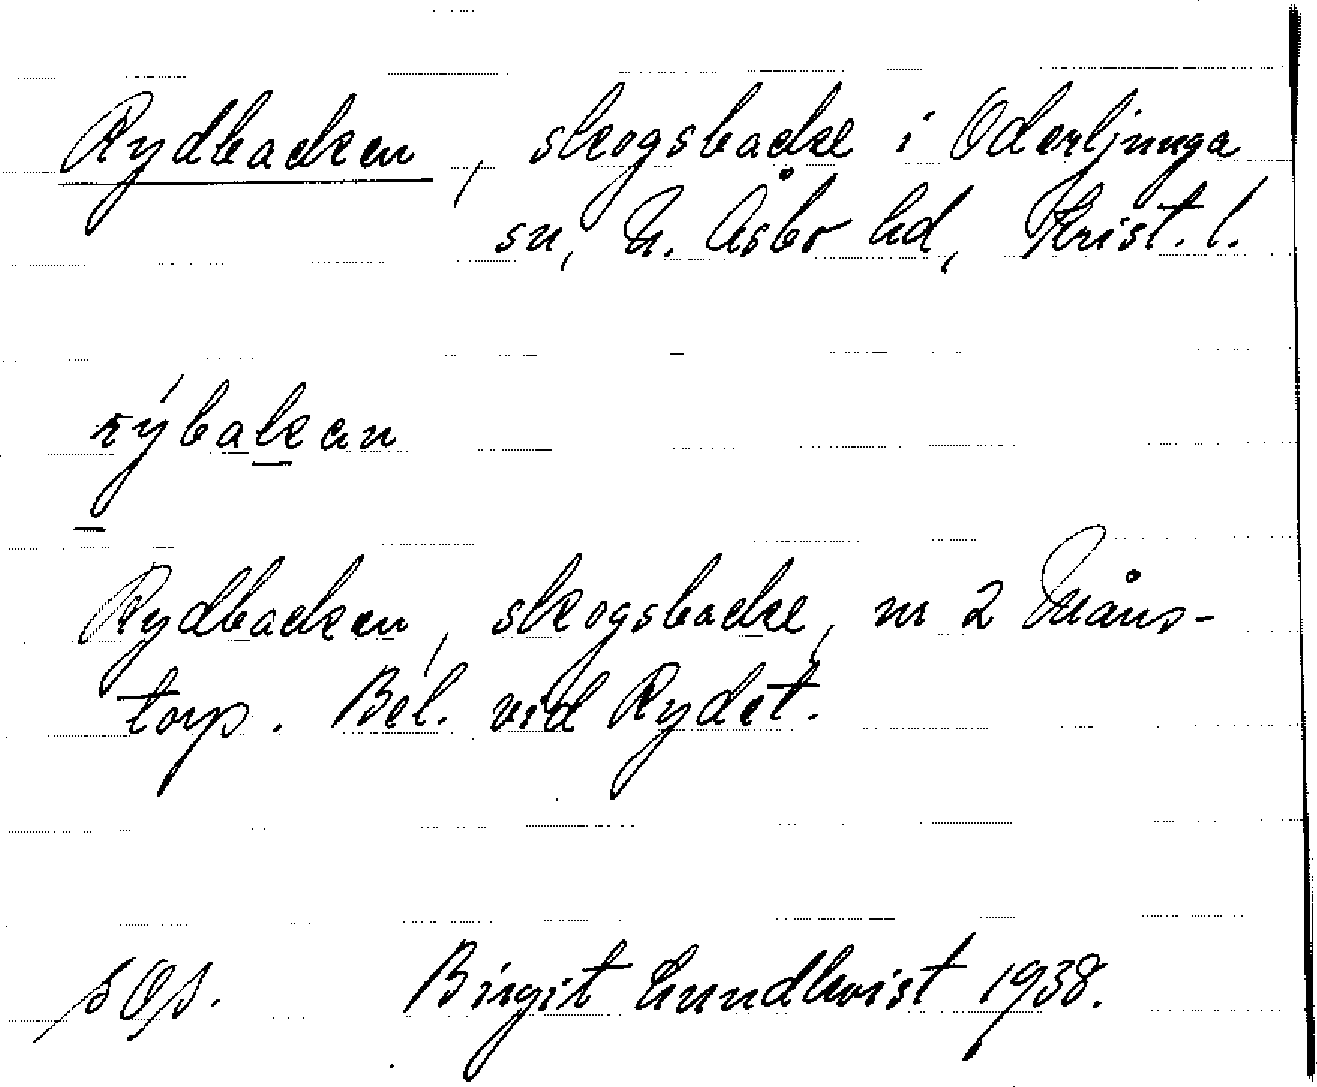 Rydbacken, skogsbacke i Oderljunga
sn, N. Åsbo hd, Krist. l.
rýbakan
Rydbacken, skogsbacke, nr 2 Måns-
torp. Bel. vid Rydet.
Birgit Lundkvist 1938.